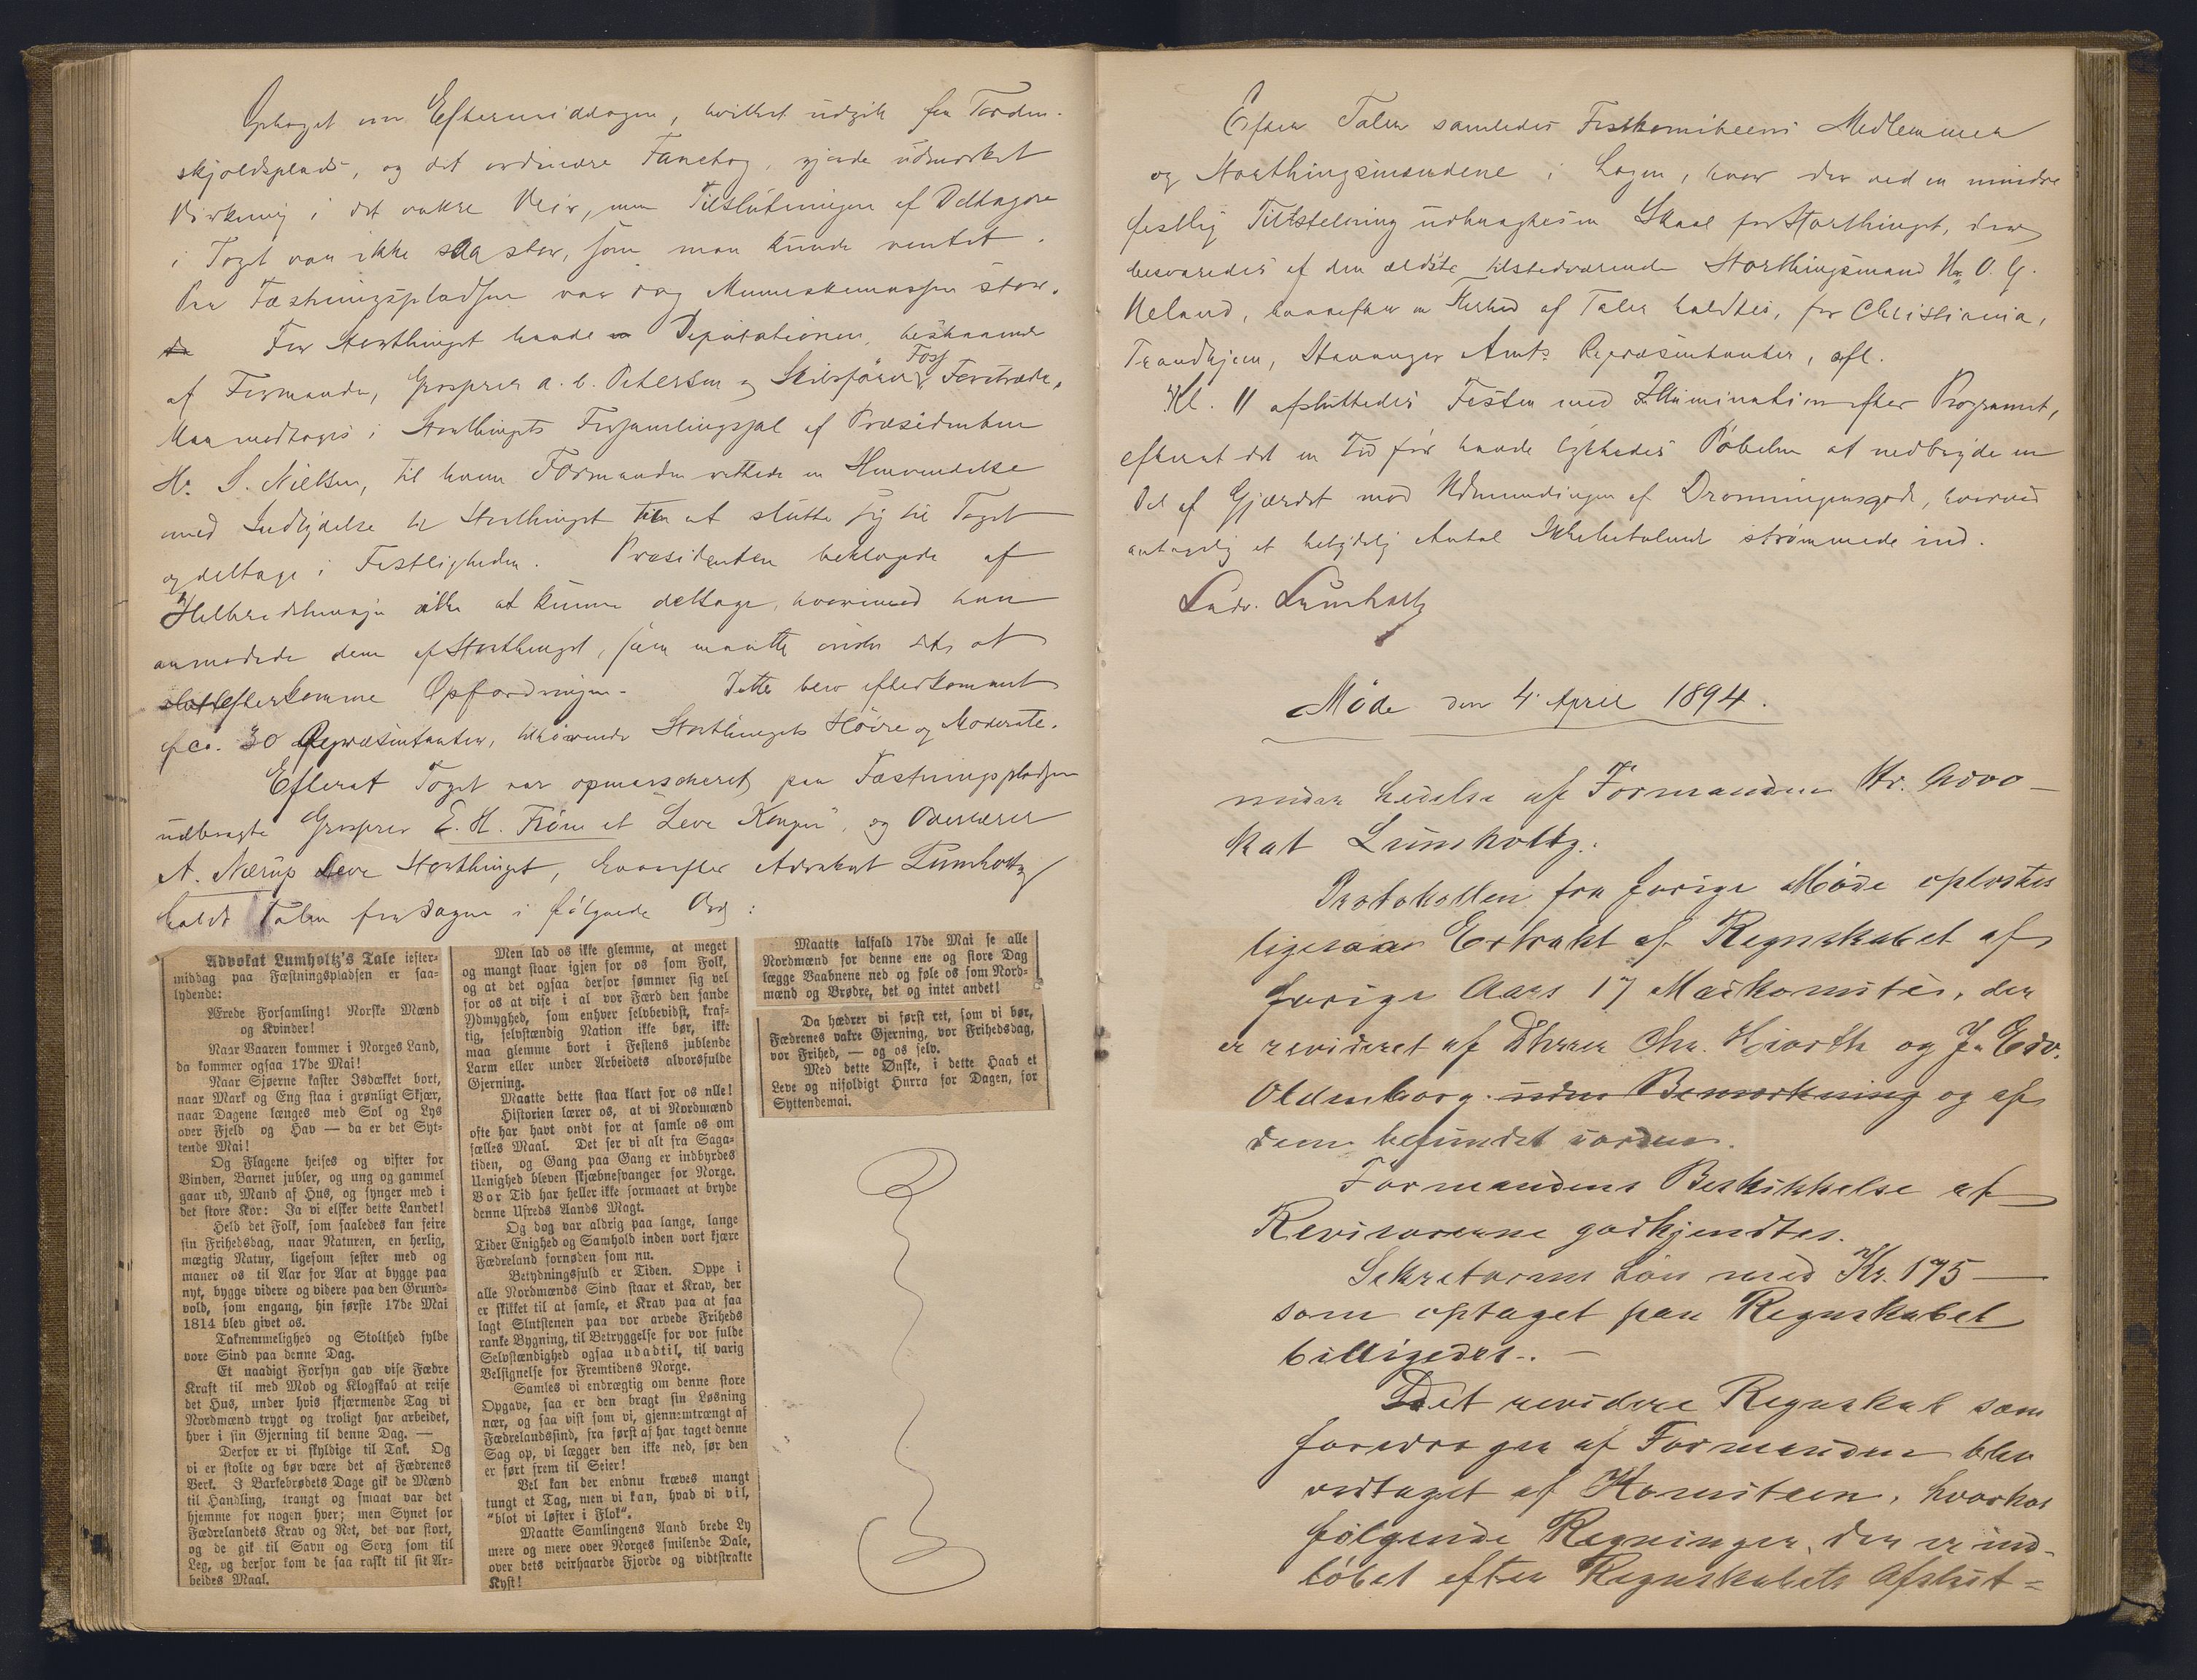 Optoget om Eftermiddagen, hvilket udgik fra Torden-
skjoldsplads, og det ordinære Fanetog, gjorde udmærket
Virkning i det vakre Veir, men Tilslutningen af Deltagere
i Toget var ikke saa stor, som man kunde ventet.
Paa Fæstningspladsen var dog Menneskemassen stor.
For Storthinget havde en Deputation, bestaaende
af Formanden, Grosserer A. C. Petersen og Skibsfører Foss Foretræde.
Man modtoges i Storthingets Forsamlingssal af Præsidenten
Hr. S. Nielsen, til hvem Formanden rettede en Henvendelse
med Indbydelse til Storthinget til at slutte sig til Toget
og deltage i Festligheden. Præsidenten beklagede af
Helbredshensyn ikke at kunne deltage, hvorimod han
anmodede dem af Storthinget, som maatte ønske det, at
efterkomme Opfordringen. Dette blev efterkommet
af ca. 30 Repræsentanter, tilhørende Storthingets Høire og Moderate.
Efterat Toget var opmarscheret paa Fæstningspladsen
udbragte Grosserer E. H. Frøm et "Leve Kongen", og Overlærer
A. Nærup Leve Storthinget, hvorefter Advokat Lumholtz
holdt Talen for Dagen i følgende Ord:
Advokat Lumholtz's Tale iefter-
middag paa Fæstningspladsen er saa-
lydende:
Ærede Forsamling! Norske Mænd
og Kvinder!
Naar Vaaren kommer i Norges Land,
da kommer ogsaa 17de Mai!
Naar Sjøerne kaster Isdækket bort,
naar Mark og Eng staa i grønligt Skjær,
naar Dagene længes med Sol og Lys
over Fjeld og Hav — da er det Syt-
tende Mai!
Og Flagene heises og vifter for
Vinden, Barnet jubler, og ung og gammel
gaar ud, Mand af Hus, og synger med i
det store Kor: Ja vi elsker dette Landet!
Held det Folk, som saaledes kan feire
sin Frihedsdag, naar Naturen, en herlig,
mægtig Natur, ligesom fester med og
maner os til Aar for Aar at bygge paa
nyt, bygge videre og videre paa den Grund-
vold, som engang, hin første 17de Mai
1814 blev givet os.
Taknemmelighed og Stolthed fylde
vore Sind paa denne Dag.
Et naadigt Forsyn gav vise Fædre
Kraft til med Mod og Klogskab at reise
det Hus, under hvis skjærmende Tag vi
Nordmænd trygt og troligt har arbeidet,
hver i sin Gjerning til denne Dag. —
Derfor er vi skyldige til Tak. Og
vi er stolte og bør være det af Fædrenes
Verk. I Barkebrødets Dage gik de Mænd
til Handling, trangt og smaat var det
hjemme for nogen hver; men Synet for
Fædrelandets Krav og Ret, det var stort,
og de gik til Savn og Sorg som til
Leg, og derfor kom de saa raskt til sit Ar-
beides Maal.
Men lad os ikke glemme, at meget
og mangt staar igjen for os som Folk,
og at det ogsaa derfor sømmer sig vel
for os at vise i al vor Færd den sande
Ydmyghed, som enhver selvbevidst, kraf-
tig, selvstændig Nation ikke bør, ikke
maa glemme bort i Festens jublende
Larm eller under Arbeidets alvorsfulde
Gjerning.
Maatte dette staa klart for os alle!
Historien lærer os, at vi Nordmænd
ofte har havt ondt for at samle os om
fælles Maal. Det ser vi alt fra Saga-
tiden, og Gang paa Gang er indbyrdes
Uenighed bleven skjæbnesvanger for Norge.
Vor Tid har heller ikke formaaet at bryde
denne Ufreds Aands Magt.
Og dog var aldrig paa lange, lange
Tider Enighed og Samhold inden vort kjære
Fædreland fornøden som nu.
Betydningsfuld er Tiden. Oppe i
alle Nordmænds Sind staar et Krav, der
er skikket til at samle, et Krav paa at faa
lagt Slutstenen paa vor arvede Friheds
ranke Bygning, til Betryggelse for vor fulde
Selvstændighed ogsaa udadtil, til varig
Velsignelse for Fremtidens Norge.
Samles vi endrægtig om denne store
Opgave, saa er den bragt sin Løsning
nær, og saa vist som vi, gjennemtrængt af
Fædrelandssind, fra først af har taget denne
Sag op, vi lægger den ikke ned, før den
er ført frem til Seier!
Vel kan der endnu kræves mangt
tungt et Tag, men vi kan, hvad vi vil,
"blot vi løfter i Flok".
Maatte Samlingens Aand brede Ly
mere og mere over Norges smilende Dale,
over dets veirhaarde Fjorde og vidtstrakte
Kyst!
Maatte ialfald 17de Mai se alle
Nordmænd for denne ene og store Dag
lægge Vaabnene ned og føle os som Nord-
mænd og Brødre, det og intet andet!
Da hædrer vi først ret, som vi bør,
Fædrenes vakre Gjerning, vor Frihedsdag,
vor Frihed, — og os selv.
Med dette Ønske, i dette Haab et
Leve og nifoldigt Hurra for Dagen, for
Syttendemai.
Efter Talen samledes Festkomiteens Medlemmer
og Storthingsmændene i Logen, hvor der ved en mindre
festlig Tilstelning udbragtes en Skaal for Storthinget, der
besvaredes af den ældste tilstedværende Storthingsmand Hr. O. G.
Ueland, hvorefter en Flerhed af Taler holdtes, for Christiania,
Trondhjem, Stavanger Amts Repræsentanter, ofl.
Kl. 11 afsluttedes Festen med Illumination efter Programmet,
efterat det en Tid før havde lykkedes Pøbelen at nedbryde en
Del af Gjærdet mod Udmundingen af Dronningensgade, hvorved
antagelig et betydelig Antal Ikkebetalende strømmede ind.
Ludv. Lumholtz
Møde den 4 April 1894.
under Ledelse af Formanden Hr. Advo-
kat Lumholtz.
Protokollen fra forige Møde oplæstes
ligesaa Extrakt af Regnskabet af
forige Aars 17 Maikomite, der
er revideret af Dhrrer Chr. Hjorth og J. Edv.
Oldenborg. uden Bemærkning og af
dem befundet iorden.
Formandens Beskikkelse af
Revisorerne godkjendtes.
Sekretærens Løn med Kr. 175 —
som optaget paa Regnskabet
billigedes. —
Det reviderte Regnskab som
foredroges af Formanden blev
vedtaget af Komiteen, hvorhos
følgende Regninger, der er ind-
løbet efter Regnskabets Afslut-